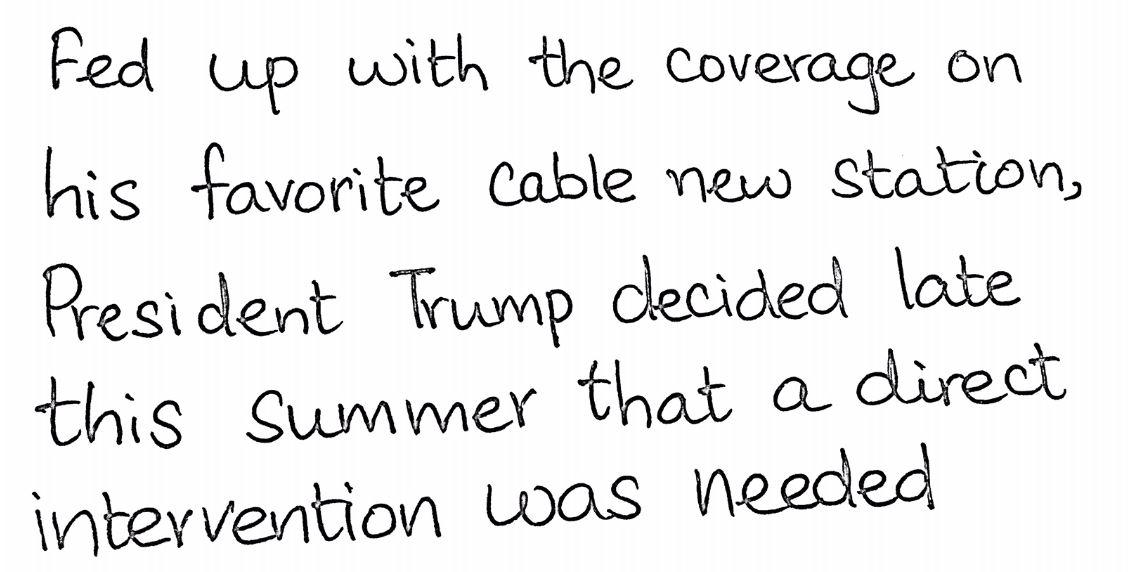 Fed up with the coverage on
his favorite cable new station,
President Trump decided late
this summer that a direct
intervention was needed